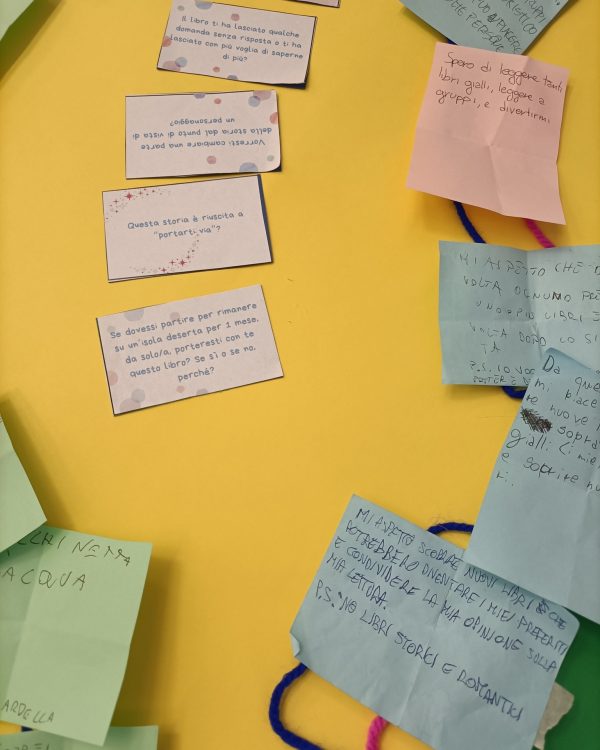 Il libro ti ha lasciato qualche
domanda senza risposta o ti ha
lasciato con più voglia di saperne
di più?
Vorresti cambiare una parte
della storia dal punto di vista di
un personaggio?
Questa storia è riuscita a
"portarti via"?
Se dovessi partire per rimanere
su un'isola deserta per 1 mese,
da solo/a, porteresti con te
questo libro? Se sì o se no,
perché?
Spero di leggere tanti
libri gialli, leggere a
gruppi, e divertirmi
MI ASPETTO CHE
VOLTA OGNUNO
LIBRI
VOLTA DOPO LO
TA
P.S. IO
Da que
mi piace
re nuove
sopra
gialli. Ci
e scoprire nu
ri..
MI ASPETTO SCOPRIRE NUOVI LIBRI E CHE
POTREBBERO DIVENTARE I MIEI PREFERITI
E CONDIVIDERE LA MIA OPINIONE SULLA
MIA LETTURA.
P.S. NO LIBRI STORICI E ROMANTICI
NEMA
ACQUA
ARDELLA